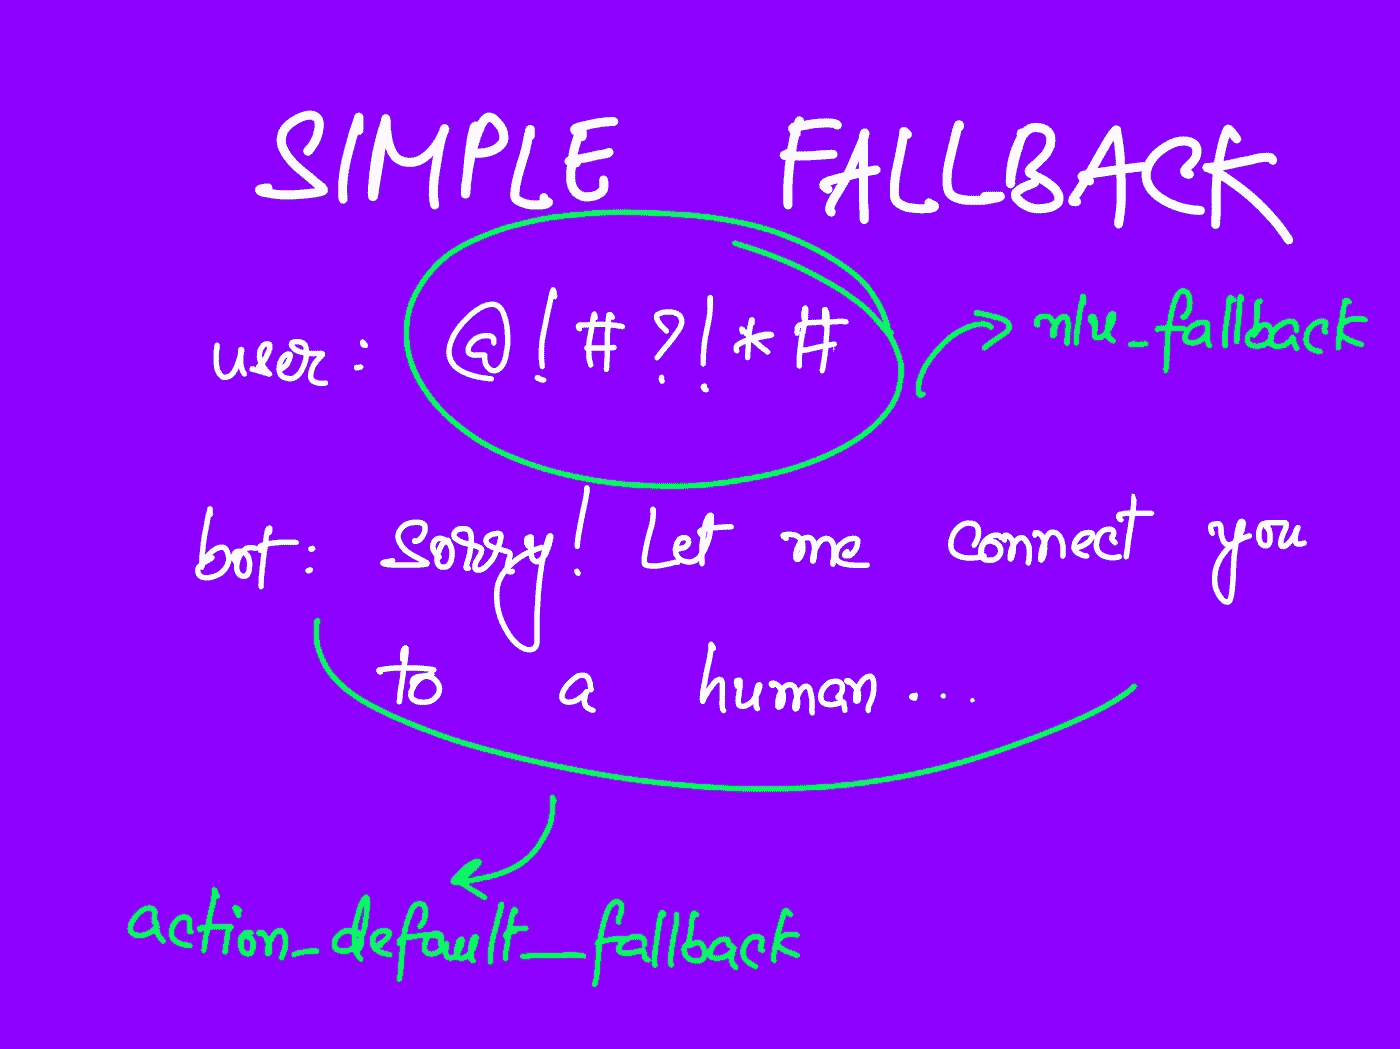 SIMPLE FALLBACK
user: @!#?!*#
nlu_fallback
bot: Sorry! Let me connect you
to a human...
action_default_fallback